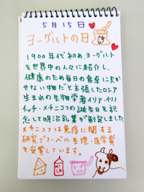 5月15日
ヨーグルトの日
1900年代初めヨーグルト
を世界中の人々に紹介し、
健康のため毎日の食事に欠か
せない物だと主張したロシア
生まれの生物学者イリヤ・イリ
イッチ・メチニコフの誕生日を記
念して明治乳業が制定しました
メチニコフは免疫に関する
研究でノーベル生理・医学賞
を受賞しています。